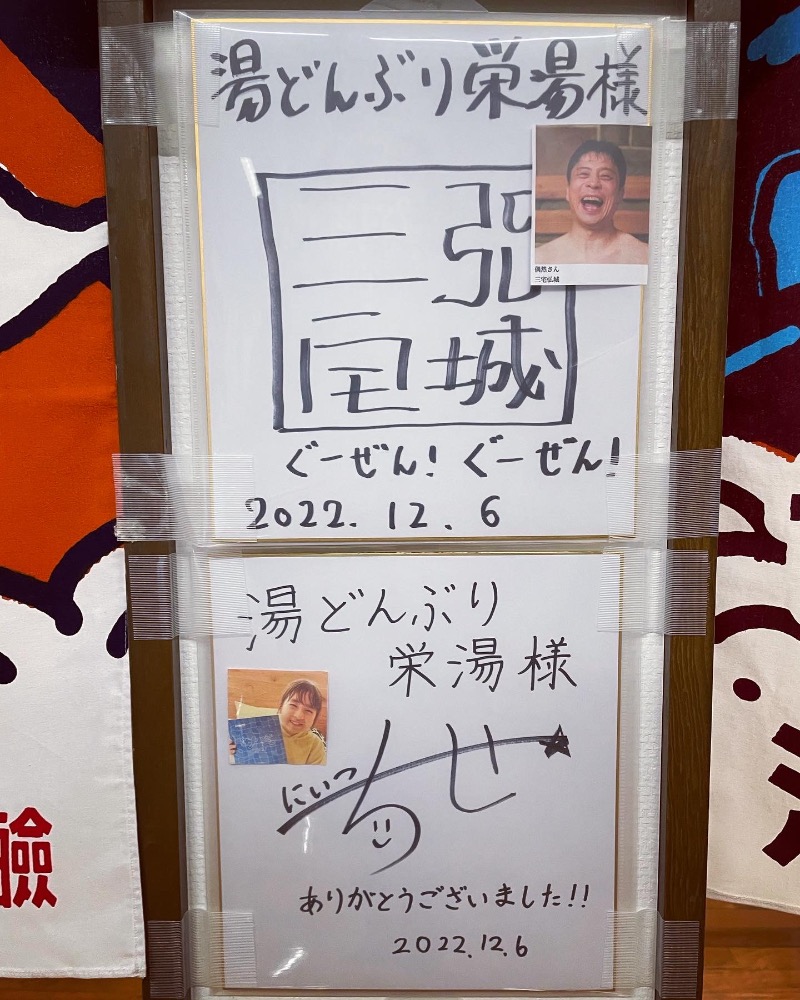 湯どんぶり栄湯様
三宅
弘城
偶然さん
三宅弘城
ぐーぜん！ぐーぜん！
2022.12.6
湯どんぶり
栄湯様
にいつ
ちせ
ありがとうございました!!
2022.12.6